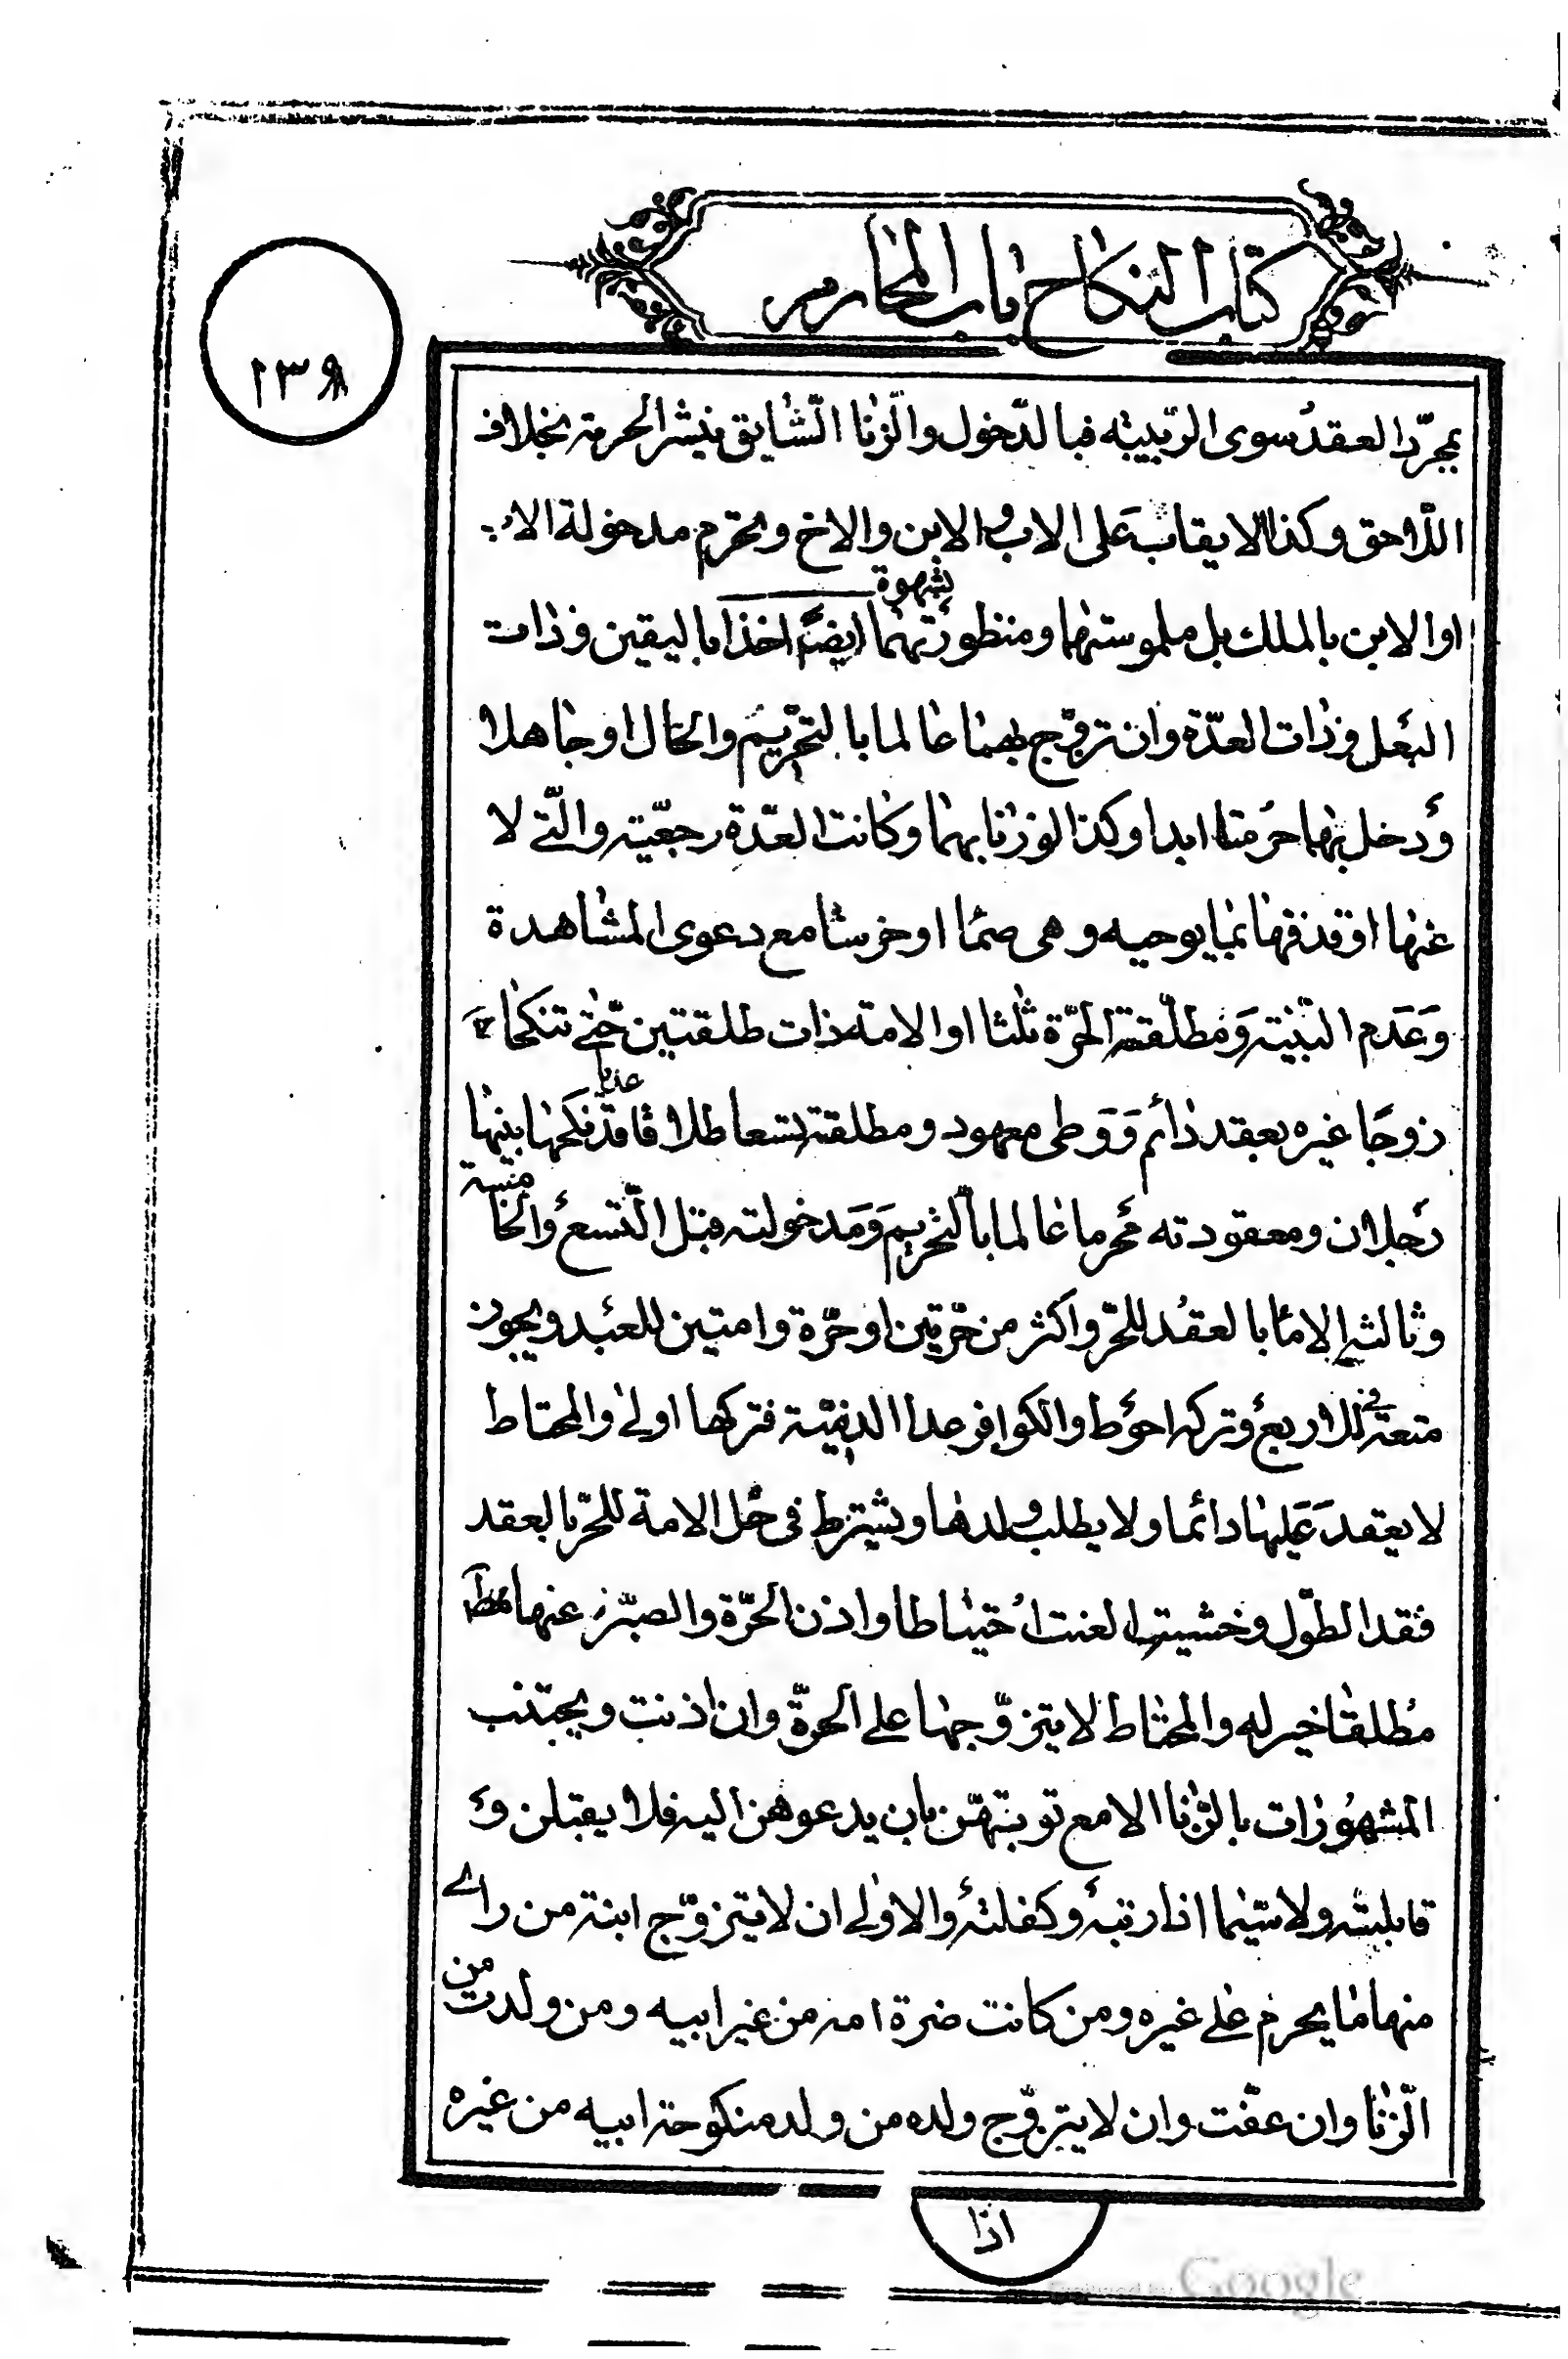 كتاب النكاح باب المحارم
١٣٩
بمجرّد العقد سوى الرّبيبه فبالدّخول والّزنا السّابق ينشر الحرمة بخلاف
اللّاحق وكذا الايقاب على الاب والابن والاخ وتحرم مدخولة الاب
او الابن بالملك بل ملموستهما ومنظورتهما بشهوة ايضًا اخذا باليقين وذات
البعل وذات العدّة وان تزوّج بهما عالما بالتحريم والحال او جاهلا
ودخل بهما حرمتا ابدا وكذا لو زنا بهما وكانت العدّة رجعيّة والّتى لا
عنها او قذفها بما يوجبه وهى صمّا او خرسا مع دعوى المشاهدة
وعدم البيّنة ومطلّقته الحرّة ثلثا او الامة ذات طلقتين حتّى تنكحا
زوجا غيره بعقد دائم ووطى معهود ومطلقته تسعا طلاقا عديا قد نكحها بينها
رجلان ومعقودته محرما عالما بالتحريم ومدخولته قبل التّسع والخامسة
وثالثة الاما بالعقد للحرّ واكثر من حرّتين او حرّة وامتين للعبد ويجوز
متعة فى للاربع وتركه احوط والكوافر عدا الذميّة فتركها اولى والمحتاط
لا يعقد عليها دائما ولا يطلب ولدها ويشترط فى حلّ الامة للحرّ بالعقد
فقد الطّول وخشية العنت احتياطا واذن الحرّة والصبّر عنها
مطلقا خير له والمحتاط لا يتزوّجها على الحرّة وان اذنت ويجتنب
المشهورات بالزّنا الا مع توبتهنّ بان يدعوهن اليه فلا يقبلن و
قابلته ولا سيّما اذا ربته وكفلته والاولى ان لا يتزوّج ابنة من راى
منها ما يحرم على غيره ومن كانت ضرة امه من غير ابيه ومن ولدت من
الّزنا وان عفّت وان لا يتزوّج ولده من ولد منكوحة ابيه من غيره
اذا
Google